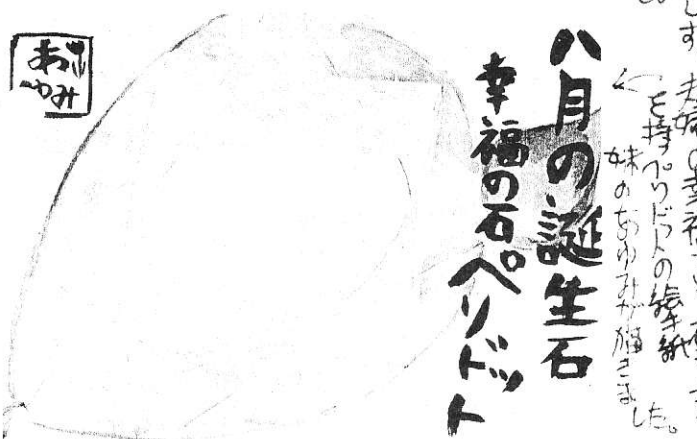 します
夫婦の幸福
を持つペリドットの絵手紙
妹のあゆみが描きました。
八月の誕生石
幸福の石。ペリドット
あゆみ